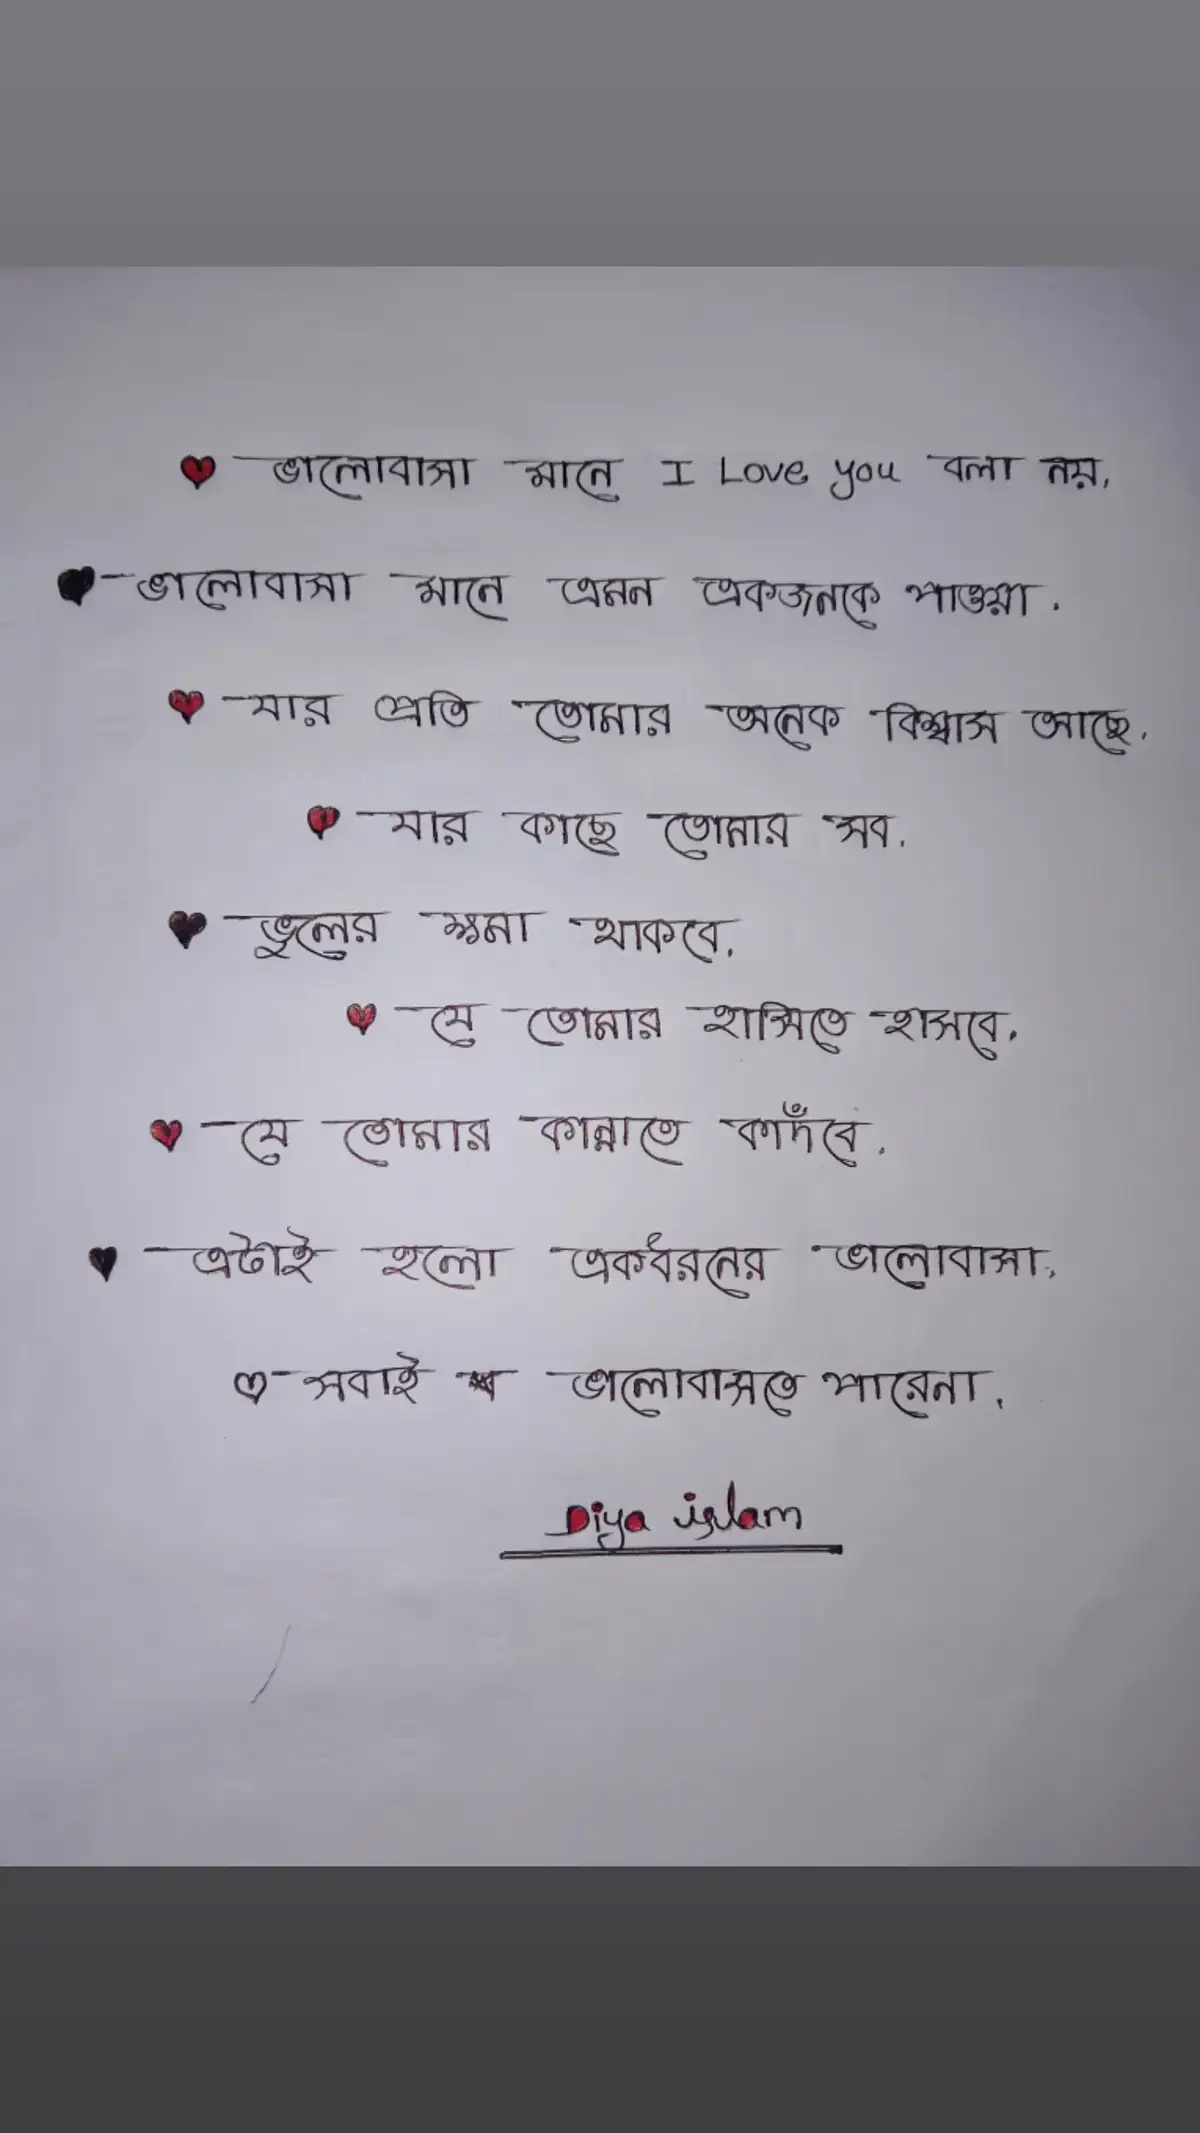 ভালোবাসা মানে I Love you বলা নয়,
ভালোবাসা মানে এমন একজনকে পাওয়া.
যার প্রতি তোমার অনেক বিশ্বাস আছে.
যার কাছে তোমার সব.
ভুলের ক্ষমা থাকবে.
যে তোমার হাসিতে হাসবে.
যে তোমার কান্নাতে কাদঁবে.
এটাই হলো একধরনের ভালোবাসা.
সবাই ভালোবাসতে পারেনা.
Diya islam